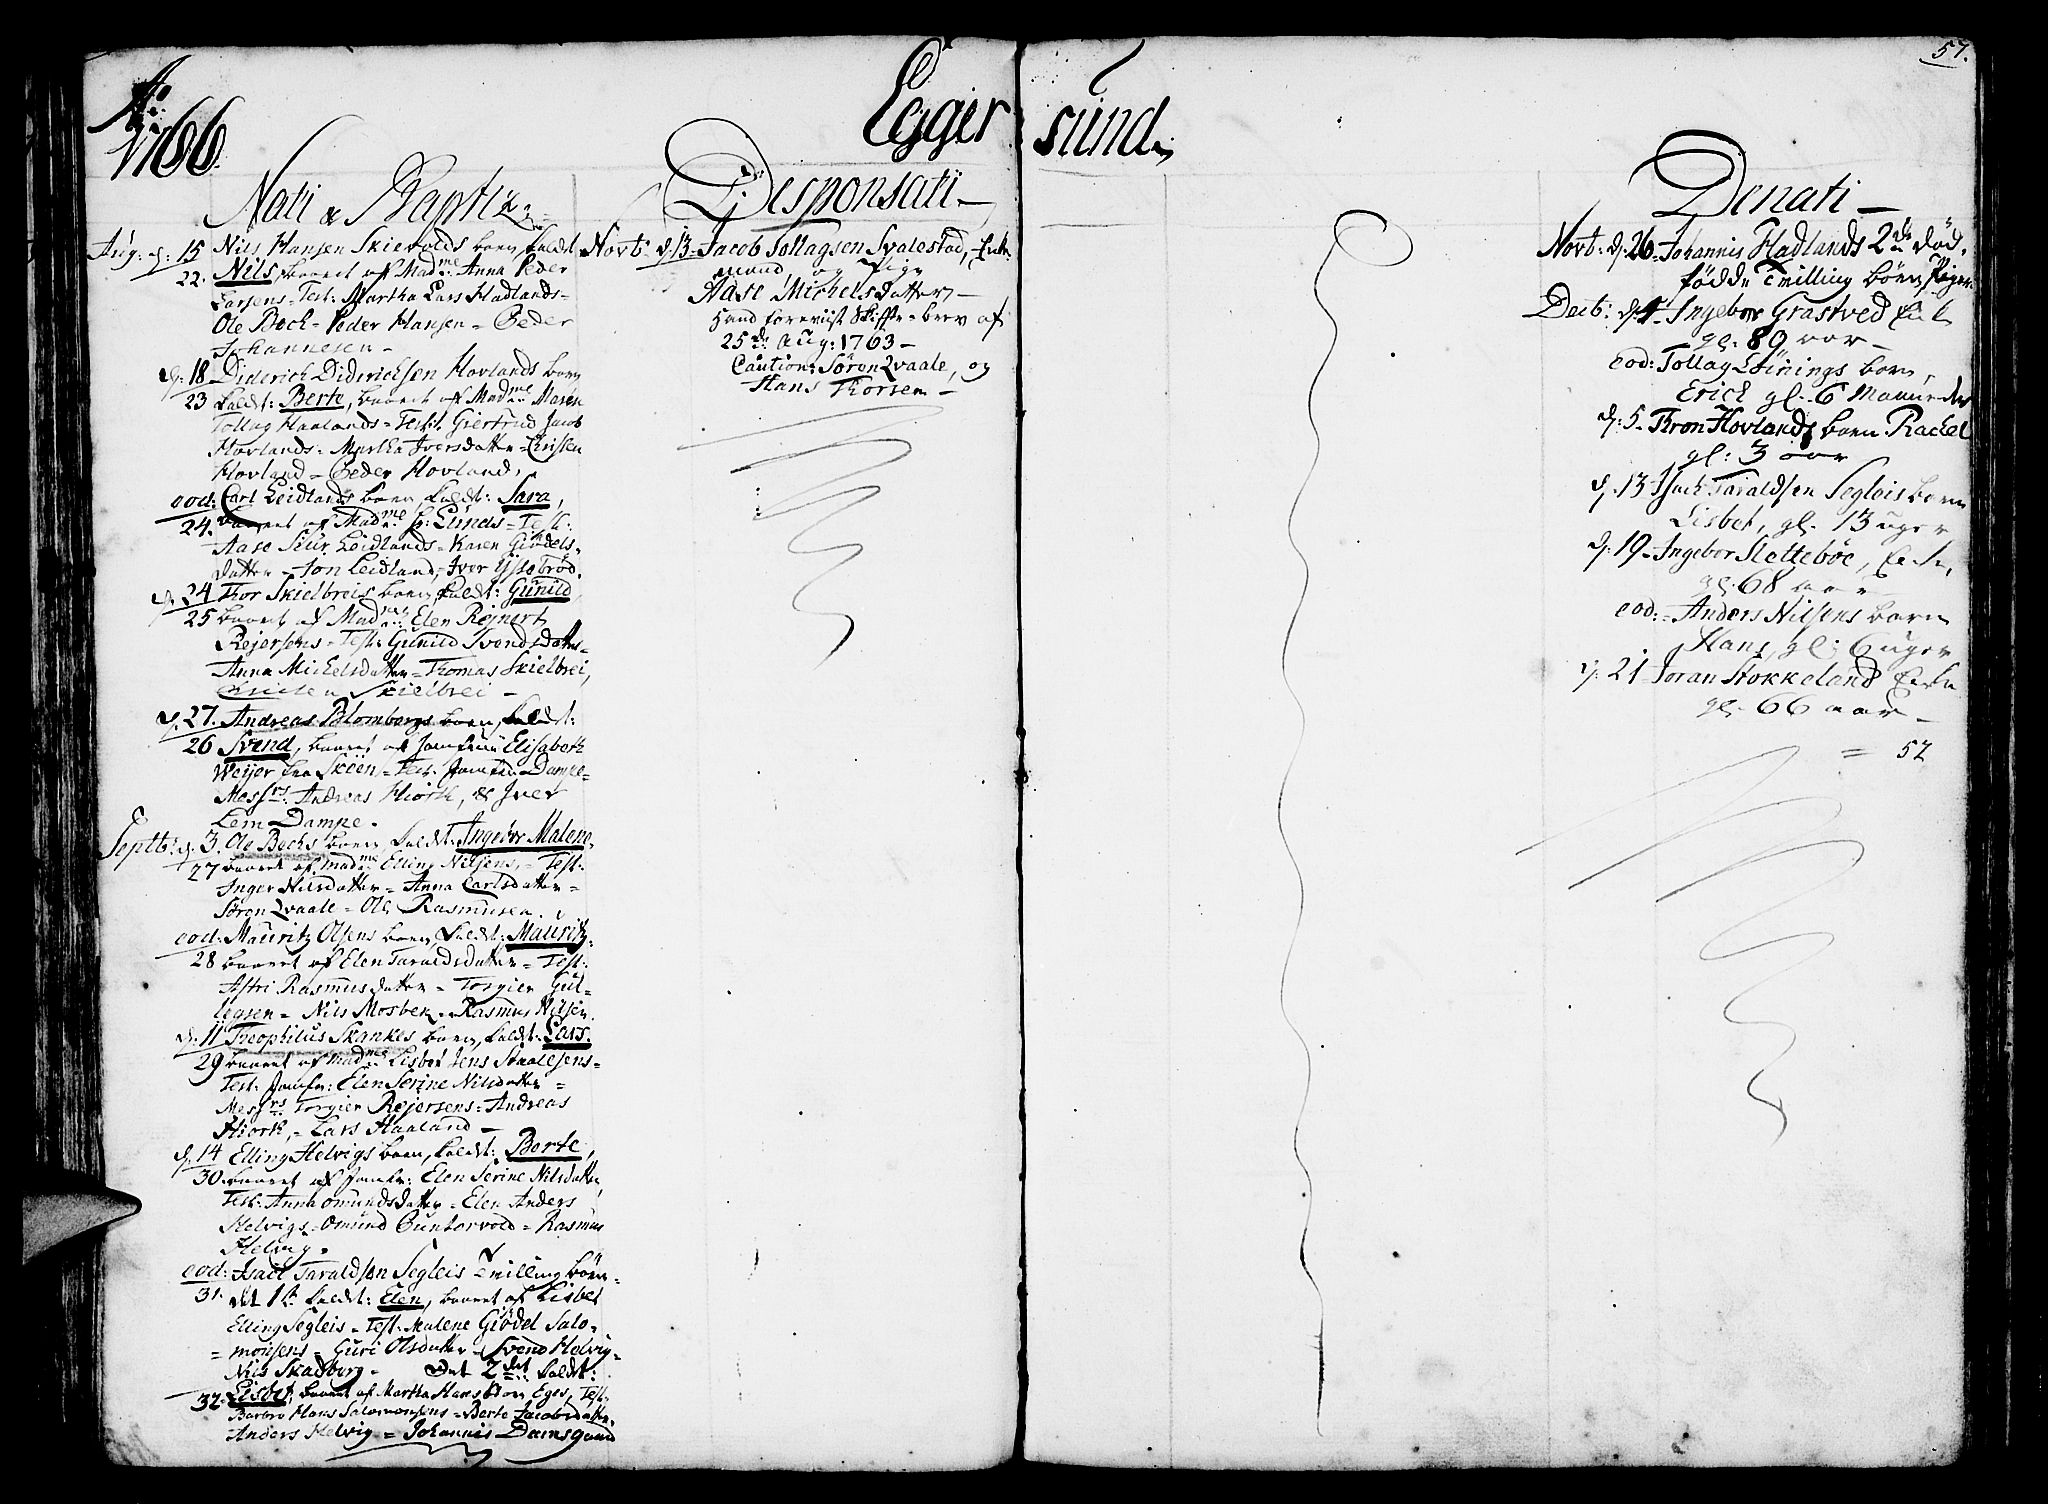 57.
Ao 1766.
Egger sund.
Nati & Baptiz:
Aug: d: 15 Nils Hansen Skievolds barn, kaldt
22. Nils, baaret af Madme Anna Peder
Larsens = Test: Martha Lars Hadlands =
Ole Bech = Peder Hansen = Peder
Johannesen -
d: 18 Diderich Diderichsen Hovlands barn
23 kaldt: Berte, baaret af Madme Maren
Tollag Haalands = Test: Giertrud Jacob
Hovlands = Martha Iversdatter = Christen
Hovland = Peder Hovland,
eod: Carl Leidlands barn, kaldt: Sara,
24. baaret af Madme Lunds = Test:
Aase Leidlands = Karen Giødels-
datter = Jon Leidland, = Iver Essebrød.
d: 24 Thor Skielbreis barn, kaldt: Gunild,
25 baaret af Madme Elen Rejnert
Rejersens = Test: Gunild Svendsdatter =
Anna Michelsdatter = Thomas Skielbrei,
Skielbrei -
d: 27. Andreas Blombergs barn, kaldt:
26 Svend, baaret af Jomfrue Elisabeth
Weyer fra Skeen = Test: Jomfru Dampe =
Messrs: Andreas Hiorth, & Iver
Lem Dampe.
Septb: d: 3. Ole Bechs barn, kaldt: Ingebor Malena,
27 baaret af Madme Elling Nilsens, = Test:
Inger Nilsdatter = Anna Carlsdatter =
Søron Qvaale = Ole Rasmusen.
eod: Mauritz Olsens barn, kaldt: Mauritz,
28 baaret af Elen Taraldsdatter = Test:
Astri Rasmusdatter = Torgier Gul-
legsen = Nils Mosbek = Rasmus Nilsen.
d: 11 Theophilus Skankes barn, kaldt: Lars.
29 baaret af Madme Lisbet Jens Staalesens =
Test: Jomfr: Elen Serine Nilsdatter =
Messrs Torgier Rejersens = Andreas
Hiorth, = Lars Haaland -
d: 14 Elling Helvigs barn, kaldt: Berte,
30. baaret af Jomfr: Elen Serine Nilsdatter,
Test: Anna Omundsdatter = Elen Anders
Helvigs = Omund Guntorvold = Rasmus
Helvig.
eod: Isach Taraldsen Segleis Tvilling børn =
31. det 1te kaldt: Elen, baaret af Lisbet
Elling Segleis = Test: Malene Giødel Salo-
= monsens = Guri Olsdatter = Svend Helvig =
Nils Skadberg - Det 2det kaldt:
32. Lisbet, baaret af Martha Hans Eges, Test:
Barbro Hans Salomonsens = Berte Jacobsdatter,
Anders Helvig = Johannis Damsgaard
Desponsati -
Novb: d: 13 - Jacob Tollagsen Svalestad, Enke
mand, og Pige
Aase Michelsdatter -
Hand foreviist Skifte-brev af
25de Aug: 1763 -
Caution: Søron Qvaale, og
Hans Thorsen -
Denati -
Novb: d: 26 - Johannis Hadlands 2de død-
fødde Tvilling børn, Piger.
Decb: d: 1 - Ingebor Grastved Enke
gl: 89 aar -
eod: Tollag Lønings barn,
Erich gl. 6 Maaneder
d: 5 - Thron Hovlands barn Rachel
gl: 3 aar
d: 13 Isach Taraldsen Segleis barn
Lisbet, gl. 13 uger
d: 19 - Ingebor Slettebøe, Enke,
gl. 68 aar
eod: - Anders Nilsens barn
Hans, gl: 6 uger
d: 21 - Joran Stokkeland Enke
gl. 66 aar -
= 52